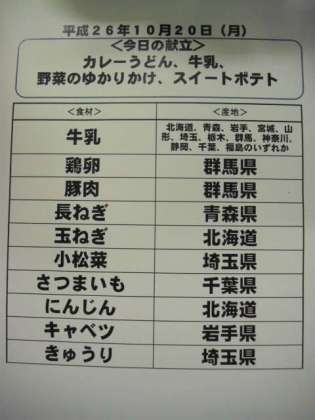 平成26年10月20日（月）
＜今日の献立＞
カレーうどん、牛乳、
野菜のゆかりかけ、スイートポテト
＜食材＞ ＜産地＞
牛乳 北海道、青森、岩手、宮城、山
形、埼玉、栃木、群馬、神奈川、
静岡、千葉、福島のいずれか
鶏卵 群馬県
豚肉 群馬県
長ねぎ 青森県
玉ねぎ 北海道
小松菜 埼玉県
さつまいも 千葉県
にんじん 北海道
キャベツ 岩手県
きゅうり 埼玉県